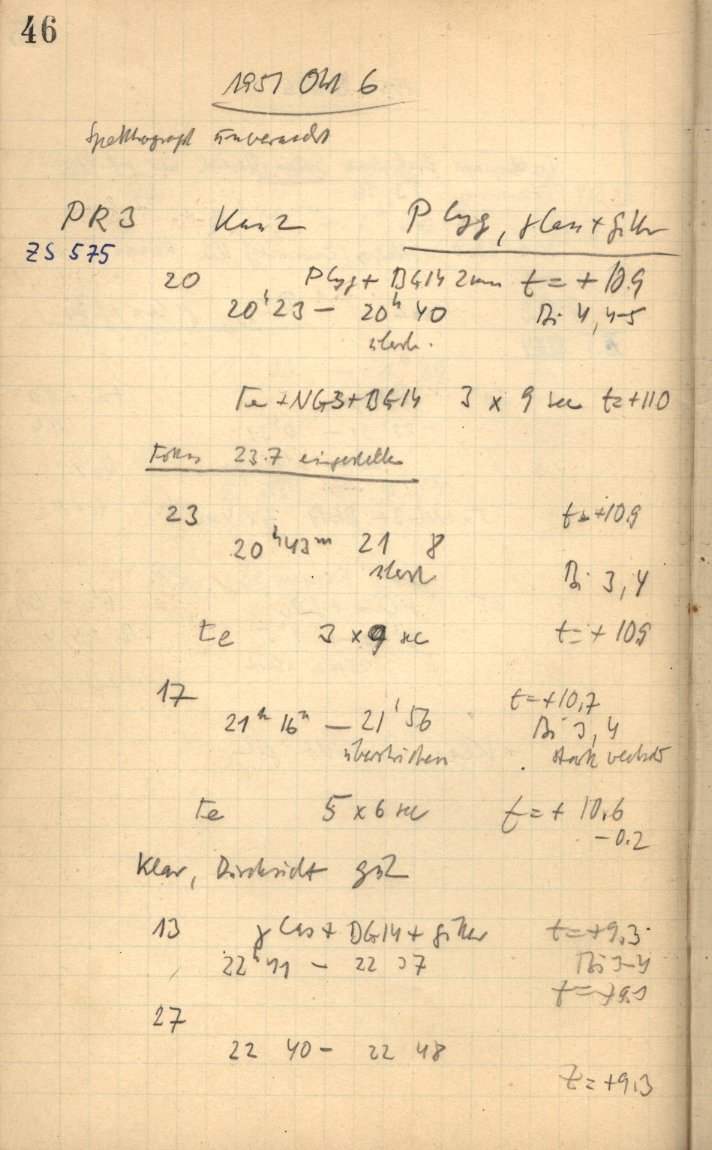 46
1951 Okt 6
Spektrograph unverändert
PR3 Kan 2 P Cyg, γ Cas + Gitter
ZS 575
20 P Cyg + BG14 2mm t = + 10.9
20h 23 – 20h 40 Bi 4, 4-5
stark.
Te + NG3 + BG14 3 x 9 sec t = +11.0
Fokus 23.7 eingestellt
23 t = +10.9
20h 43m 21 8
stark Bi 3, 4
te 3 x 9 sec t = + 10.9
17 t = +10,7
21h 16m – 21h 56 Bi 3, 4
überstrichen stark
Te 5 x 6 sec t = + 10.6
– 0.2
Klar, Durchsicht gut
13 γ Cas + BG14 + Gitter t = +9.3
22h 11 – 22 37 Bi 3-4
t = +9.3
27
22 40 – 22 48
t = +9.3